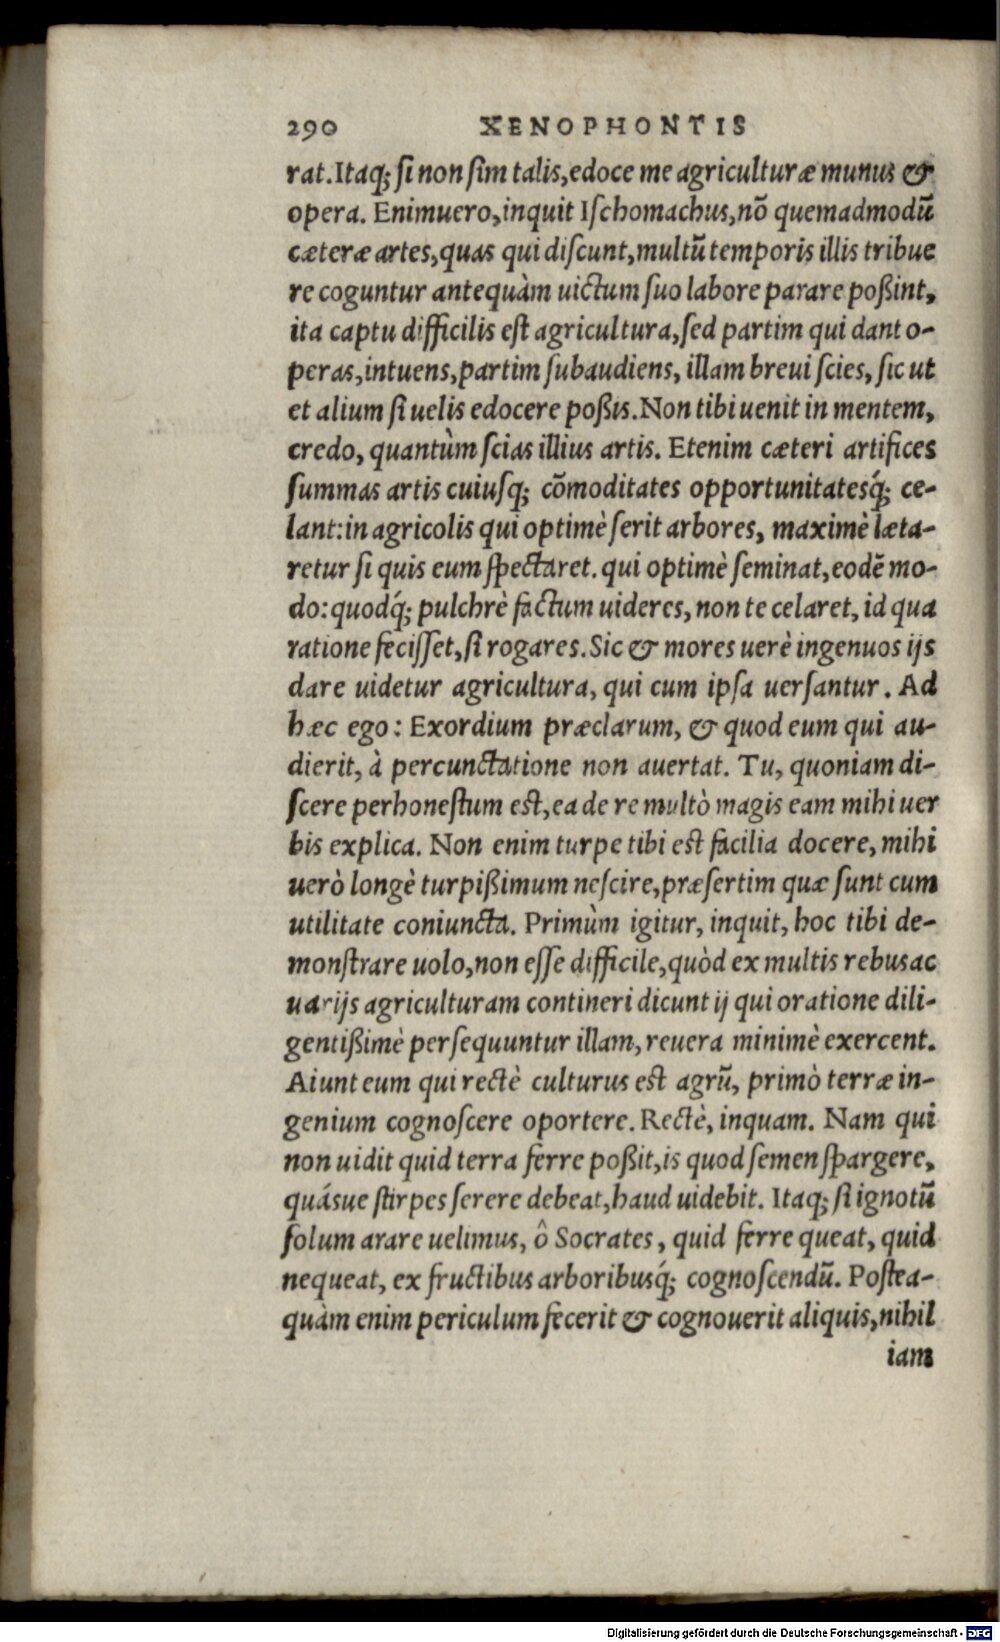 290 XENOPHONTIS
rat. Itaq; ſi non ſim talis, edoce me agriculturæ munus &
opera. Enimuero, inquit Iſchomachus, nõ quemadmodũ
cæteræ artes, quas qui diſcunt, multũ temporis illis tribue
re coguntur antequàm uictum ſuo labore parare poßint,
ita captu difficilis eſt agricultura, ſed partim qui dant o-
peras, intuens, partim ſubaudiens, illam breui ſcies, ſic ut
et alium ſi uelis edocere poßis. Non tibi uenit in mentem,
credo, quantùm ſcias illius artis. Etenim cæteri artifices
ſummas artis cuiuſq; cõmoditates opportunitatesq́; ce-
lant: in agricolis qui optimè ſerit arbores, maximè læta-
retur ſi quis eum ſpectaret. qui optimè ſeminat, eodẽ mo-
do: quodq́; pulchrè factum uideres, non te celaret, id qua
ratione feciſſet, ſi rogares. Sic & mores uerè ingenuos ijs
dare uidetur agricultura, qui cum ipſa uerſantur. Ad
hæc ego: Exordium præclarum, & quod eum qui au-
dierit, à percunctatione non auertat. Tu, quoniam di-
ſcere perhoneſtum eſt, ea de re multò magis eam mihi uer
bis explica. Non enim turpe tibi eſt facilia docere, mihi
uerò longè turpißimum neſcire, præſertim quæ ſunt cum
utilitate coniuncta. Primùm igitur, inquit, hoc tibi de-
monſtrare uolo, non eſſe difficile, quòd ex multis rebus ac
uarijs agriculturam contineri dicunt ij qui oratione dili-
gentißimè perſequuntur illam, reuera minimè exercent.
Aiunt eum qui rectè culturus eſt agrũ, primò terræ in-
genium cognoſcere oportere. Rectè, inquam. Nam qui
non uidit quid terra ferre poßit, is quod ſemen ſpargere,
quásue ſtirpes ſerere debeat, haud uidebit. Itaq; ſi ignotũ
ſolum arare uelimus, ô Socrates, quid ferre queat, quid
nequeat, ex fructibus arboribusq́; cognoſcendũ. Poſtea-
quàm enim periculum fecerit & cognouerit aliquis, nihil
iam
Digitalisierung gefördert durch die Deutsche Forschungsgemeinschaft - DFG